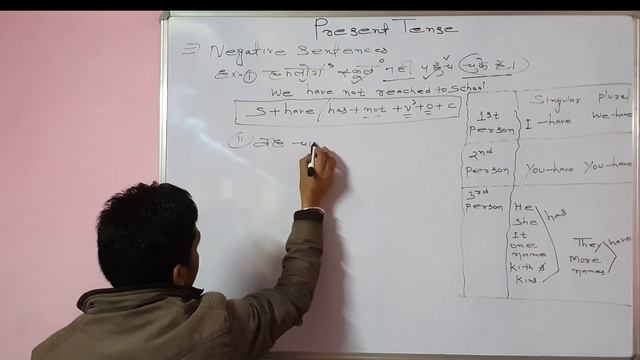 Present Tense
Negative Sentences
Ex:- (i) हमलोग स्कूल नहीं पहुँचे चुके हैं।
We have not reached to School
S + have / has + not + V³ + O + C
(ii) वह
Singular plural
1st person I - have We - have
2nd person You - have You - have
3rd person He
She
It
one
name
kith &
kins
has
They
more
names
have